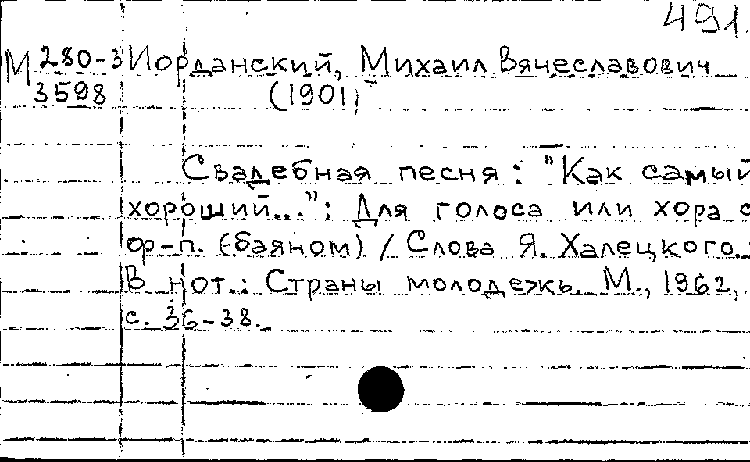 491.
М 280-3 Иорданский, Михаил Вячеславович
3598 (1901)
Свадебная песня: "Как самый
хороший...": Для голоса или хора с
ор-п. (баяном) / Слова Я. Халецкого.
В нот.: Страны молодежь. М., 1962,
с. 36-38.